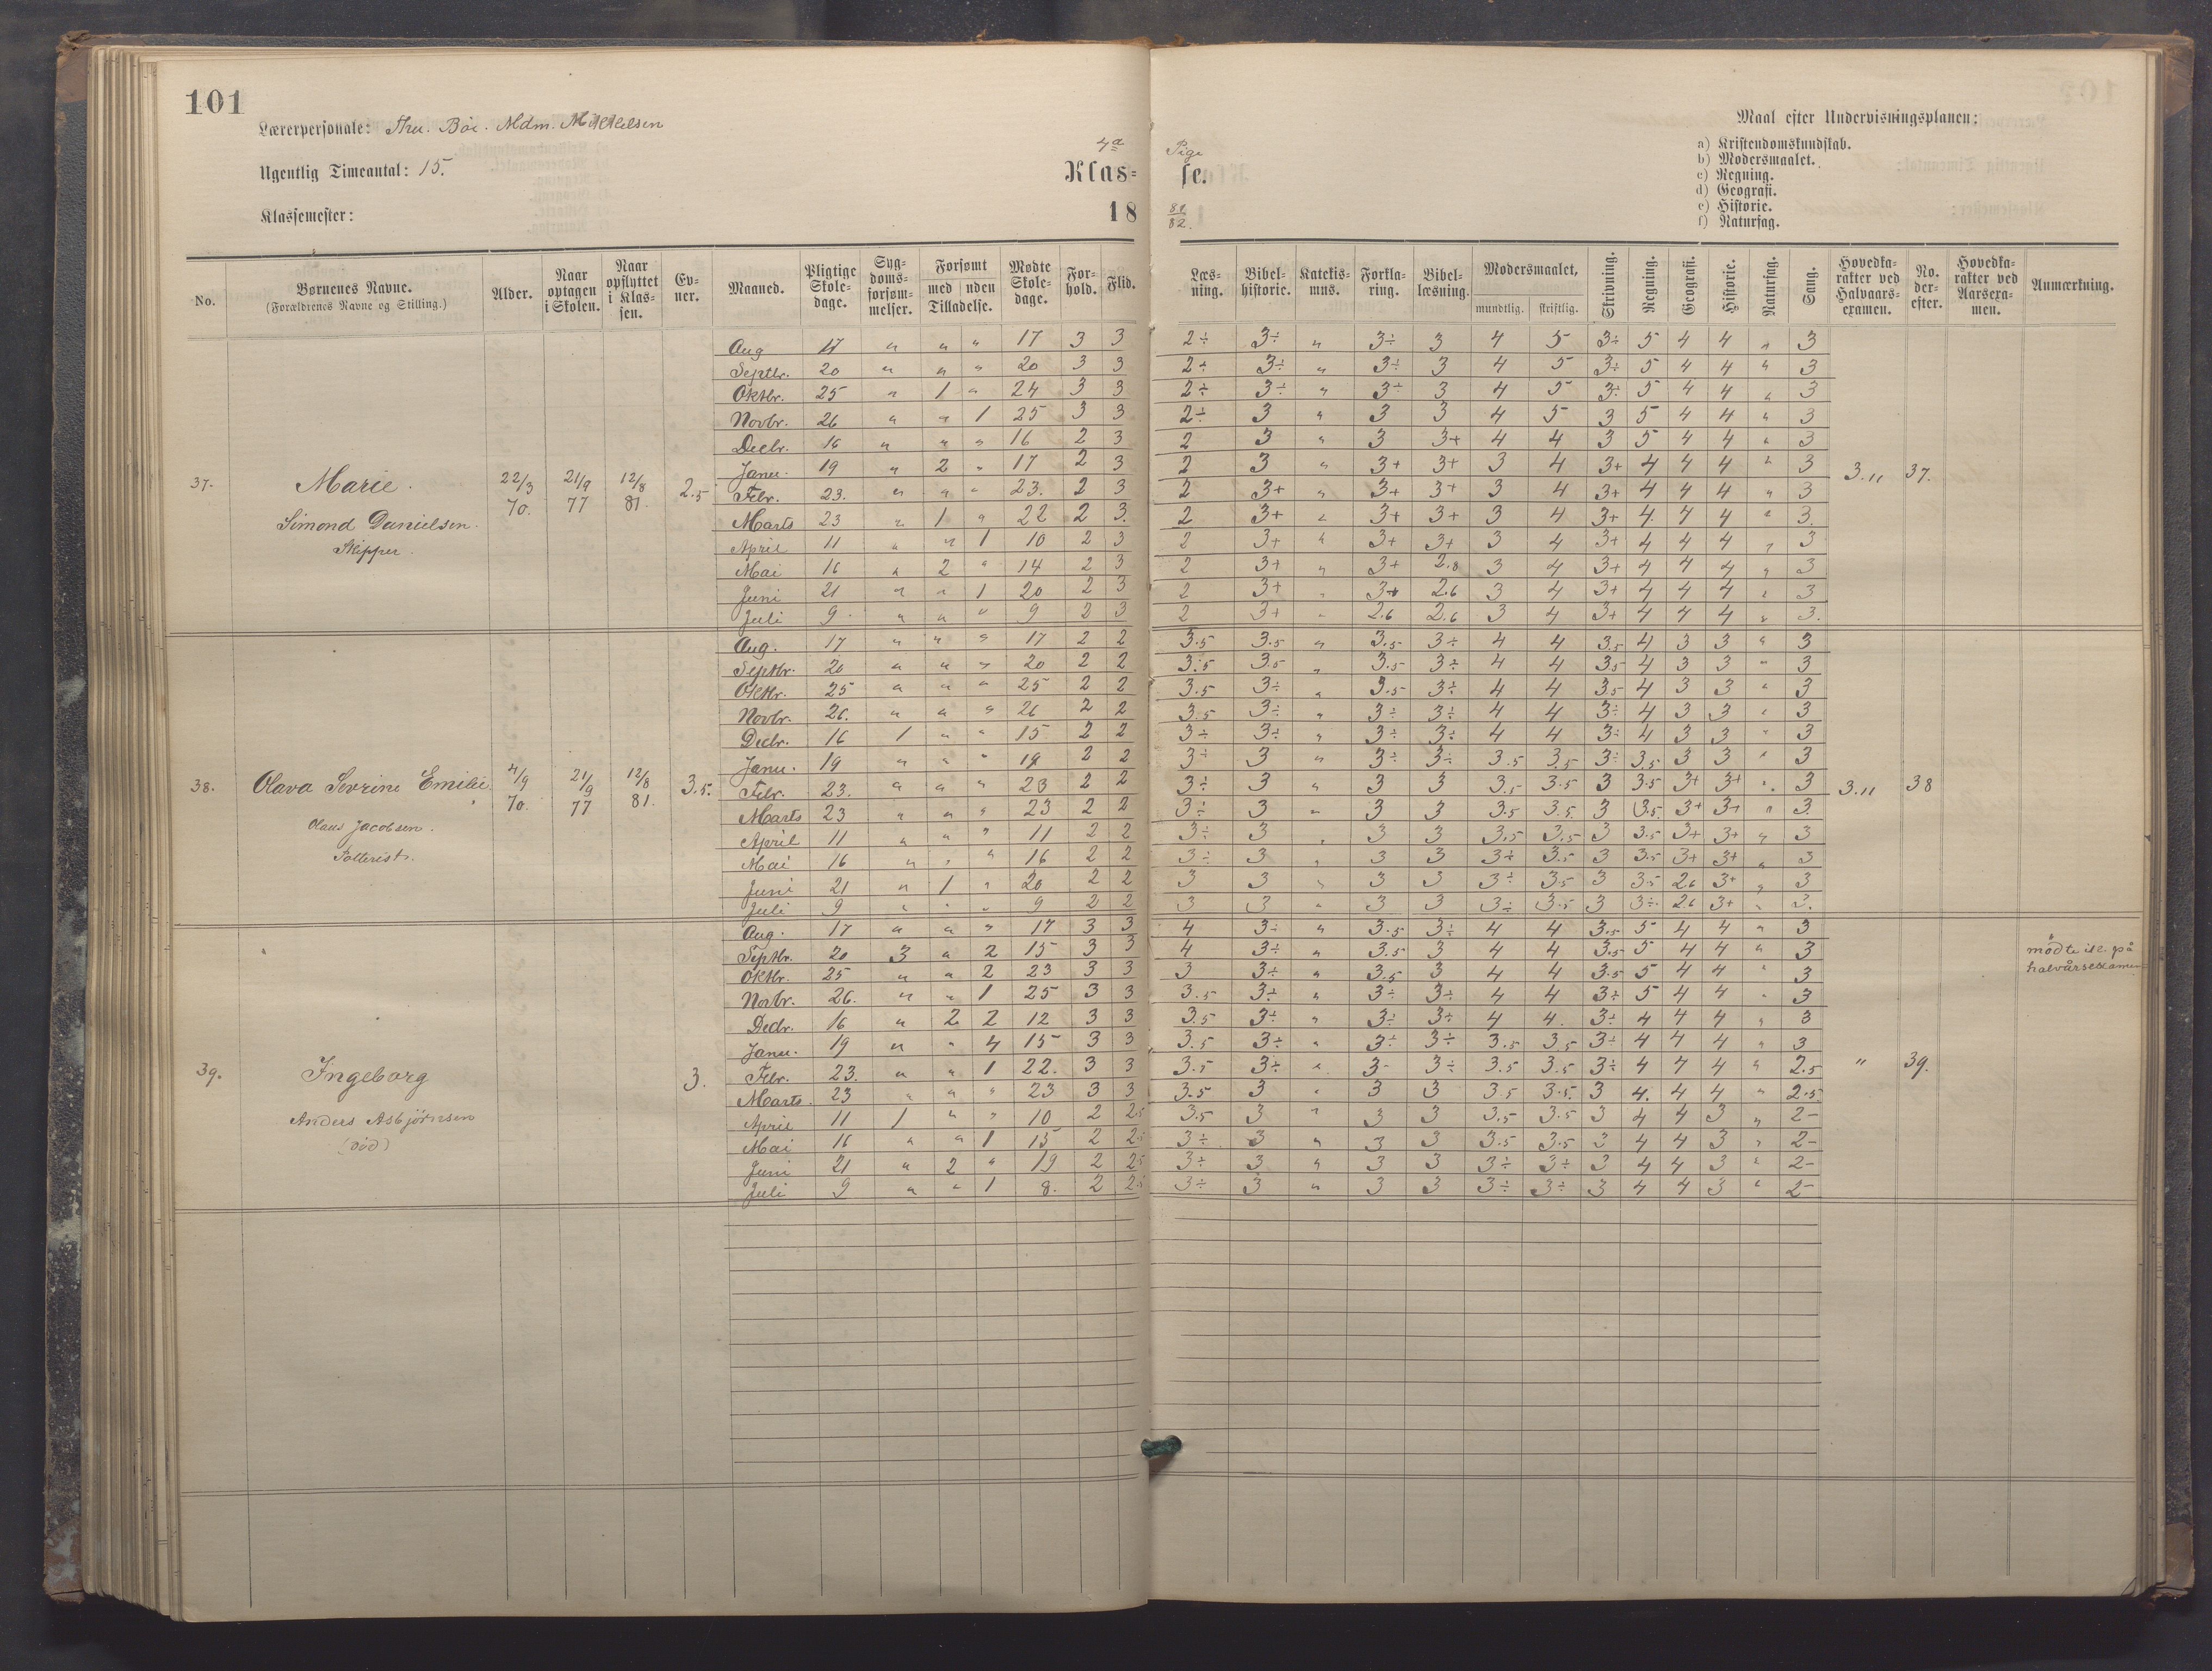 101
Lærerpersonale: Thu. Böe. Mdm. Mikkelsen
Ugentlig Timeantal: 15.
Klassemester:
4a Pige
Klas= se.
18 81/82.
Maal efter Undervisningsplanen:
a) Kristendomskundskab.
b) Modersmaalet.
c) Regning.
d) Geografi.
e) Historie.
f) Naturfag.
No. | Børnenes Navne. (Forældrenes Navne og Stilling.) | Alder. | Naar optagen i Skolen. | Naar opflyttet i Klas=sen. | Ev=ner. | Maaned. | Pligtige Skole=dage. | Syg=doms=forsøm=melser. | Forsømt med Tilladelse. | uden | Mødte Skole=dage. | For=hold. | Flid. | Læs=ning. | Bibel=historie. | Katekis=mus. | Forkla=ring. | Bibel=læsning. | Modersmaalet, mundtlig. | skriftlig. | Skrivning. | Regning. | Geografi. | Historie. | Naturfag. | Sang. | Hovedka=rakter ved Halvaars=examen. | No. der=efter. | Hovedka=rakter ved Aarsexa=men. | Anmærkning.
37. Marie. 22/3 70. 21/9 77 12/8 81. 2.5 3.11 37.
Simond Danielsen.
Skipper.
Aug 17 " " " 17 3 3 2÷ 3÷ " 3÷ 3 4 5 3÷ 5 4 4 " 3
Septbr. 20 " " " 20 3 3 2÷ 3÷ " 3÷ 3 4 5 3÷ 5 4 4 " 3
Oktbr. 25 " 1 " 24 3 3 2÷ 3÷ " 3÷ 3 4 5 3÷ 5 4 4 " 3
Novbr. 26 " " 1 25 3 3 2÷ 3 " 3 3 4 5 3 5 4 4 " 3
Decbr. 16 " " " 16 2 3 2 3 " 3 3+ 4 4 3 5 4 4 " 3
Janu. 19 " 2 " 17 2 3 2 3 " 3+ 3+ 3 4 3+ 4 4 4 " 3
Febr. 23. " " " 23. 2 3 2 3+ " 3+ 3+ 3 4 3+ 4 4 4 " 3
Marts 23 " 1 " 22 2 3. 2 3+ " 3+ 3+ 3 4 3+ 4. 4 4 " 3.
April 11 " " 1 10 2 3 2 3+ " 3+ 3+ 3 4 3+ 4 4 4 " 3
Mai 16 " 2 " 14 2 3 2 3+ " 3+ 2.8 3 4 3+ 4 4 4 " 3
Juni 21 " " 1 20 2 3 2 3+ " 3+ 2.6 3 4 3+ 4 4 4 " 3
Juli 9 " " " 9 2 3 2 3+ " 2.6 2.6 3 4 3+ 4 4 4 " 3.
38. Olava Sevrine Emilie. 4/9 70. 21/9 77 12/8 81. 3.5. 3.11 38
Olaus Jacobsen.
Aug. 17 " " " 17 2 2 3.5 3.5 " 3.5 3÷ 4 4 3.5 4 3 3 " 3
Septbr. 20 " " " 20 2 2 3.5 3.5 " 3.5 3÷ 4 4 3.5 4 3 3 " 3
Oktbr. 25 " " " 25 2 2 3.5 3÷ " 3.5 3÷ 4 4 3.5 4 3 3 " 3
Novbr. 26. " " " 26 2 2 3.5 3÷ " 3÷ 3÷ 4 4 3÷ 4 3 3 " 3
Decbr. 16 1 " " 15 2 2 3÷ 3÷ " 3÷ 3÷ 4 4 3÷ 4 3 3 " 3
Janu. 19 " " " 19 2 2 3÷ 3 " 3÷ 3÷ 3.5 3.5 3÷ 3.5 3 3 " 3
Febr. 23. " " " 23 2 2 3÷ 3 " 3 3 3.5 3.5 3 3.5 3+ 3+ " 3
Marts 23 " " " 23 2 2 3÷ 3 " 3 3 3.5 3.5. 3 3.5. 3+ 3+ " 3.
April 11 " " " 11 2 2 3÷ 3 " 3 3 3.5 3.5 3 3.5 3+ 3+ " 3
Mai 16 " " " 16 2 2 3÷ 3 " 3 3 3÷ 3.5 3 3.5 3+ 3+ " 3
Juni 21 " 1 " 20 2 2 3 3 " 3 3 3÷ 3.5 3 3.5 2.6 3+ " 3
Juli 9 " " " 9 2 2 3 3 " 3 3 3÷ 3.5 3 3÷ 2.6 3+ " 3.
39. Ingeborg 3. " 39.
Anders Asbjörnsen
(död)
mödte ikke på
halvårsexamen
Aug. 17 " " " 17 3 3 4 3÷ " 3.5 3÷ 4 4 3.5 5 4 4 " 3
Septbr. 20 3 " 2 15 3 3 4 3÷ " 3.5 3 4 4 3.5 5 4 4 " 3
Oktbr. 25 " " 2 23 3 3 3 3÷ " 3.5 3 4 4 3.5 5 4 4 " 3
Novbr. 26. " " 1 25 3 3 3.5 3÷ " 3÷ 3÷ 4 4 3÷ 5 4 4 " 3
Decbr. 16 " 2 2 12 3 3 3.5 3÷ " 3÷ 3÷ 4 4. 3÷ 4 4 4 " 3
Janu. 19 " " 4 15 3 3 3.5 3÷ " 3÷ 3÷ 3.5 3.5 3÷ 4 4 4 " 3
Febr. 23. " " 1 22. 3 3 3.5 3÷ " 3- 3÷ 3.5 3.5 3÷ 4 4 4 " 2.5
Marts. 23 " " " 23 3 3 3.5 3 " 3 3 3.5 3.5. 3 4. 4 4 " 2.5
April 11 1 " " 10 2 2.5 3.5 3 " 3 3 3.5 3.5 3 4 4 3 " 2-
Mai 16 " " 1 15 2 2.5 3÷ 3 " 3 3 3.5 3.5 3 4 4 3 " 2-
Juni 21 " 2 " 19 2 2.5 3÷ 3 " 3 3 3÷ 3÷ 3 4 4 3 " 2-
Juli 9 " " 1 8. 2 2.5 3÷ 3 " 3 3 3÷ 3÷ 3 4 4 3 " 2-